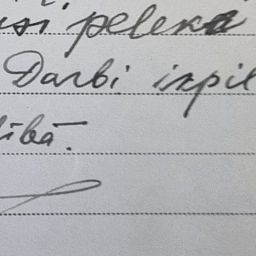 usi pelēka
Darbi izpil
lībā.